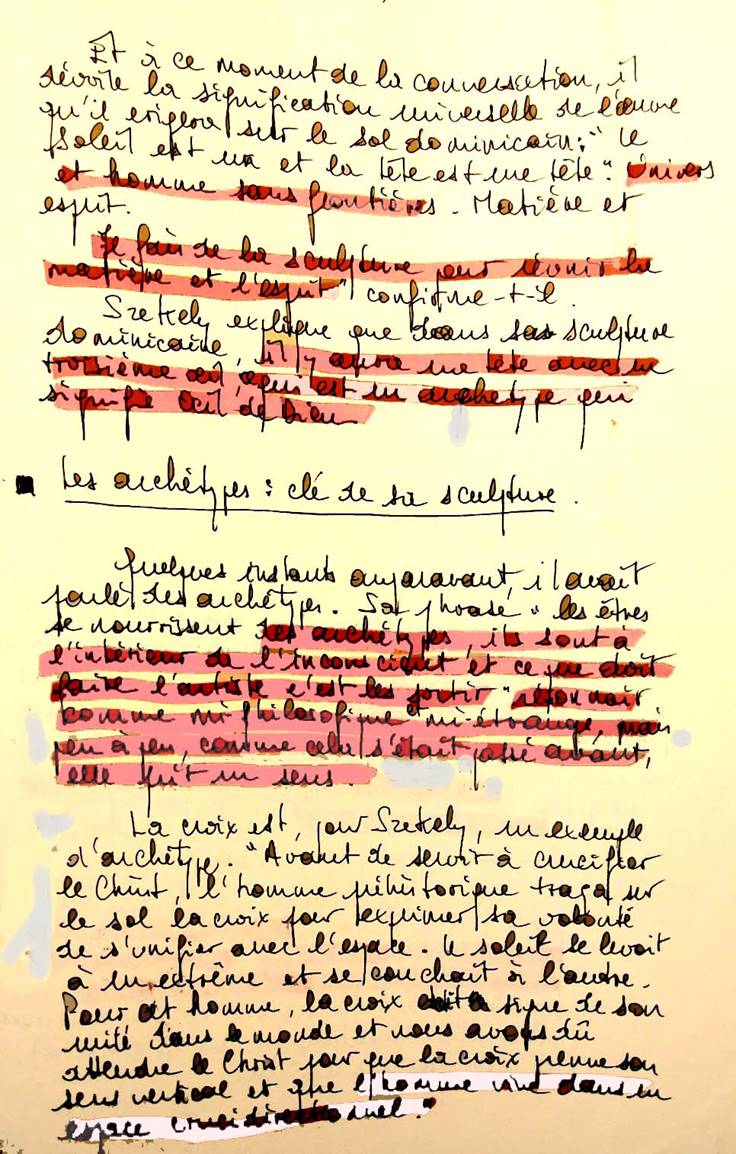 Et à ce moment de la conversation, il
dévoile la signification universelle de l'œuvre
qu'il erigera sur le sol dominicain : "Le
Soleil est un et la tête est une tête". Univers
et homme sans frontières. Matière et
esprit.
"Je fais de la sculpture pour réunir la
matière et l'esprit", confirme-t-il.
Szekely explique que dans sa sculpture
dominicaine, il y aura une tête avec un
troisième œil, "qui est un archétype qui
signifie Œil de Dieu
Les archétypes : clé de sa sculpture.
Quelques instants auparavant, il avait
parlé des archétypes. Sa phrase "les êtres
se nourrissent des archétypes, ils sont à
l'intérieur de l'inconscient et ce que doit
faire l'artiste c'est les sortir" résonnait
comme mi-philosofique mi-étrange, mais
peu à peu, comme cela s'était passé avant,
elle prit un sens.
La croix est, pour Szekely, un exemple
d'archétype. "Avant de servir à crucifier
le Christ, l'homme préhistorique traça sur
le sol la croix pour exprimer sa volonté
de s'unifier avec l'espace. Le soleil se levait
à un extrême et se couchait à l'autre.
Pour cet homme, la croix signe de son
unité dans le monde et nous avons dû
attendre le Christ pour que la croix prenne son
sens vertical et que l'homme vive dans un
espace crucidirectionnel."